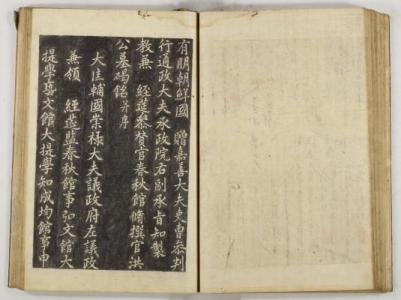 有明朝鮮國 贈嘉善大夫吏曹叅判
行通政大夫承政院右副承旨知製
教兼 經筵叅賛官春秋館脩撰官洪
公墓碣銘 并序
大匡輔國崇祿大夫議政府左議政
兼領 經筵監春秋館事弘文館大
提學藝文館大提學知成均館事申